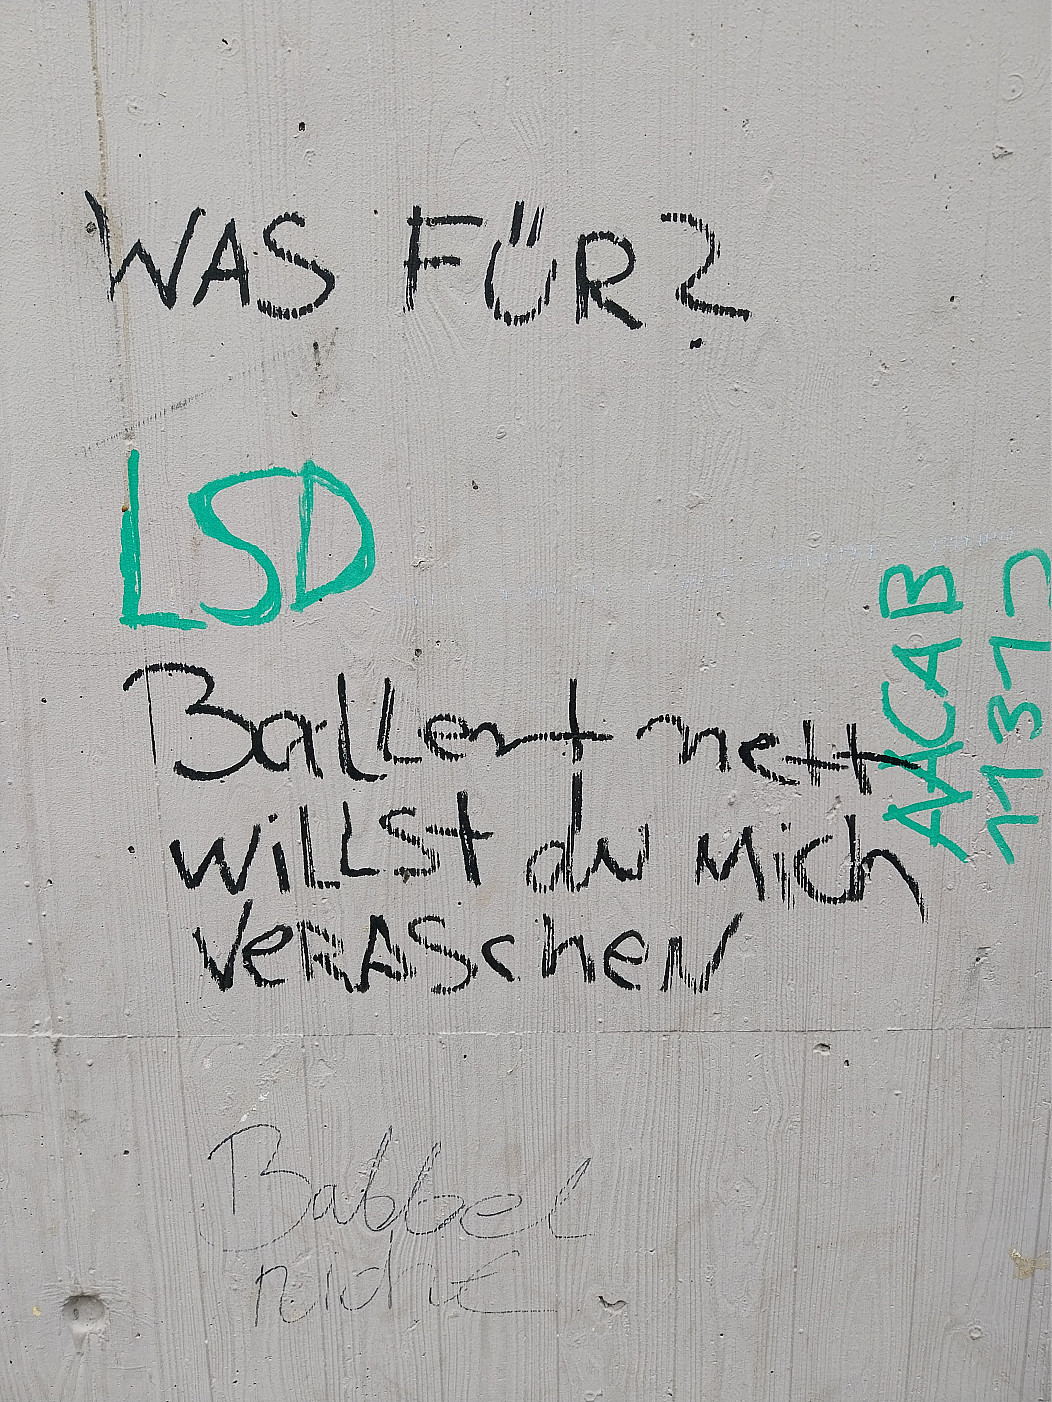 WAS FÜR?
LSD
Ballert nett
willst du Mich
VeRASchen
Babbel
nicht